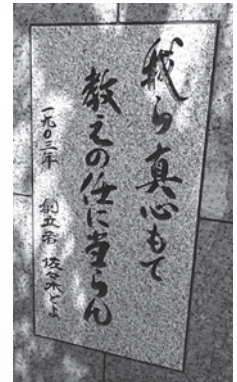 我ら真心もて
教えの任に当らん
一九〇三年 創立者 佐々木とよ